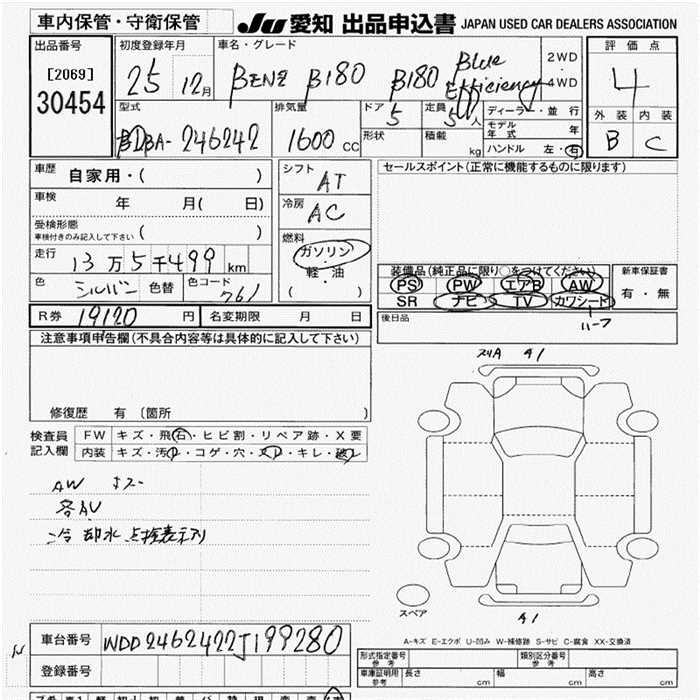 車内保管・守衛保管 JU 愛知 出品申込書 JAPAN USED CAR DEALERS ASSOCIATION
出品番号
[2069]
30454
初度登録年月
25 12月
車名・グレード
BENZ B180 B180 Blue Efficiency
2WD
・
4WD
評価点
4
外装 内装
B C
型式
DBA-246242
排気量
1600 cc
ドア
5
定員
5人
形状
積載
kg
ディーラー・並行
モデル年式 年
ハンドル 左・右
車歴
自家用・( )
車検
年 月( 日)
受検形態
車検付きのみ記入して下さい ( )
走行
13万5千499 km
色 シルバー 色替 色コード 761
シフト
AT
冷房
AC
燃料
ガソリン・
軽・油
( )
セールスポイント(正常に機能するものに限ります)
装備品(純正品に限り○をつけてください)
PS PW エアB AW
SR ナビ TV カワシート
ハーフ
新車保証書
有・無
後日品
R券 19120 円 名変期限 月 日
注意事項申告欄(不具合内容等は具体的に記入して下さい)
修復歴 有 〔箇所 〕
検査員
記入欄
FW キズ・飛石・ヒビ割・リペア跡・X要
内装 キズ・汚レ・コゲ・穴・スレ・キレ・破レ
AW キズ
各AU
冷却水 点検表示アリ
スリA A1
スペア
A1
A-キズ E-エクボ U-凹み W-補修跡 S-サビ C-腐食 XX-交換済
車台番号 WDD2462422J199280
登録番号
形式指定番号
参考
類別区分番号
参考
車庫証明用
参考
長さ cm 幅 cm 高さ cm